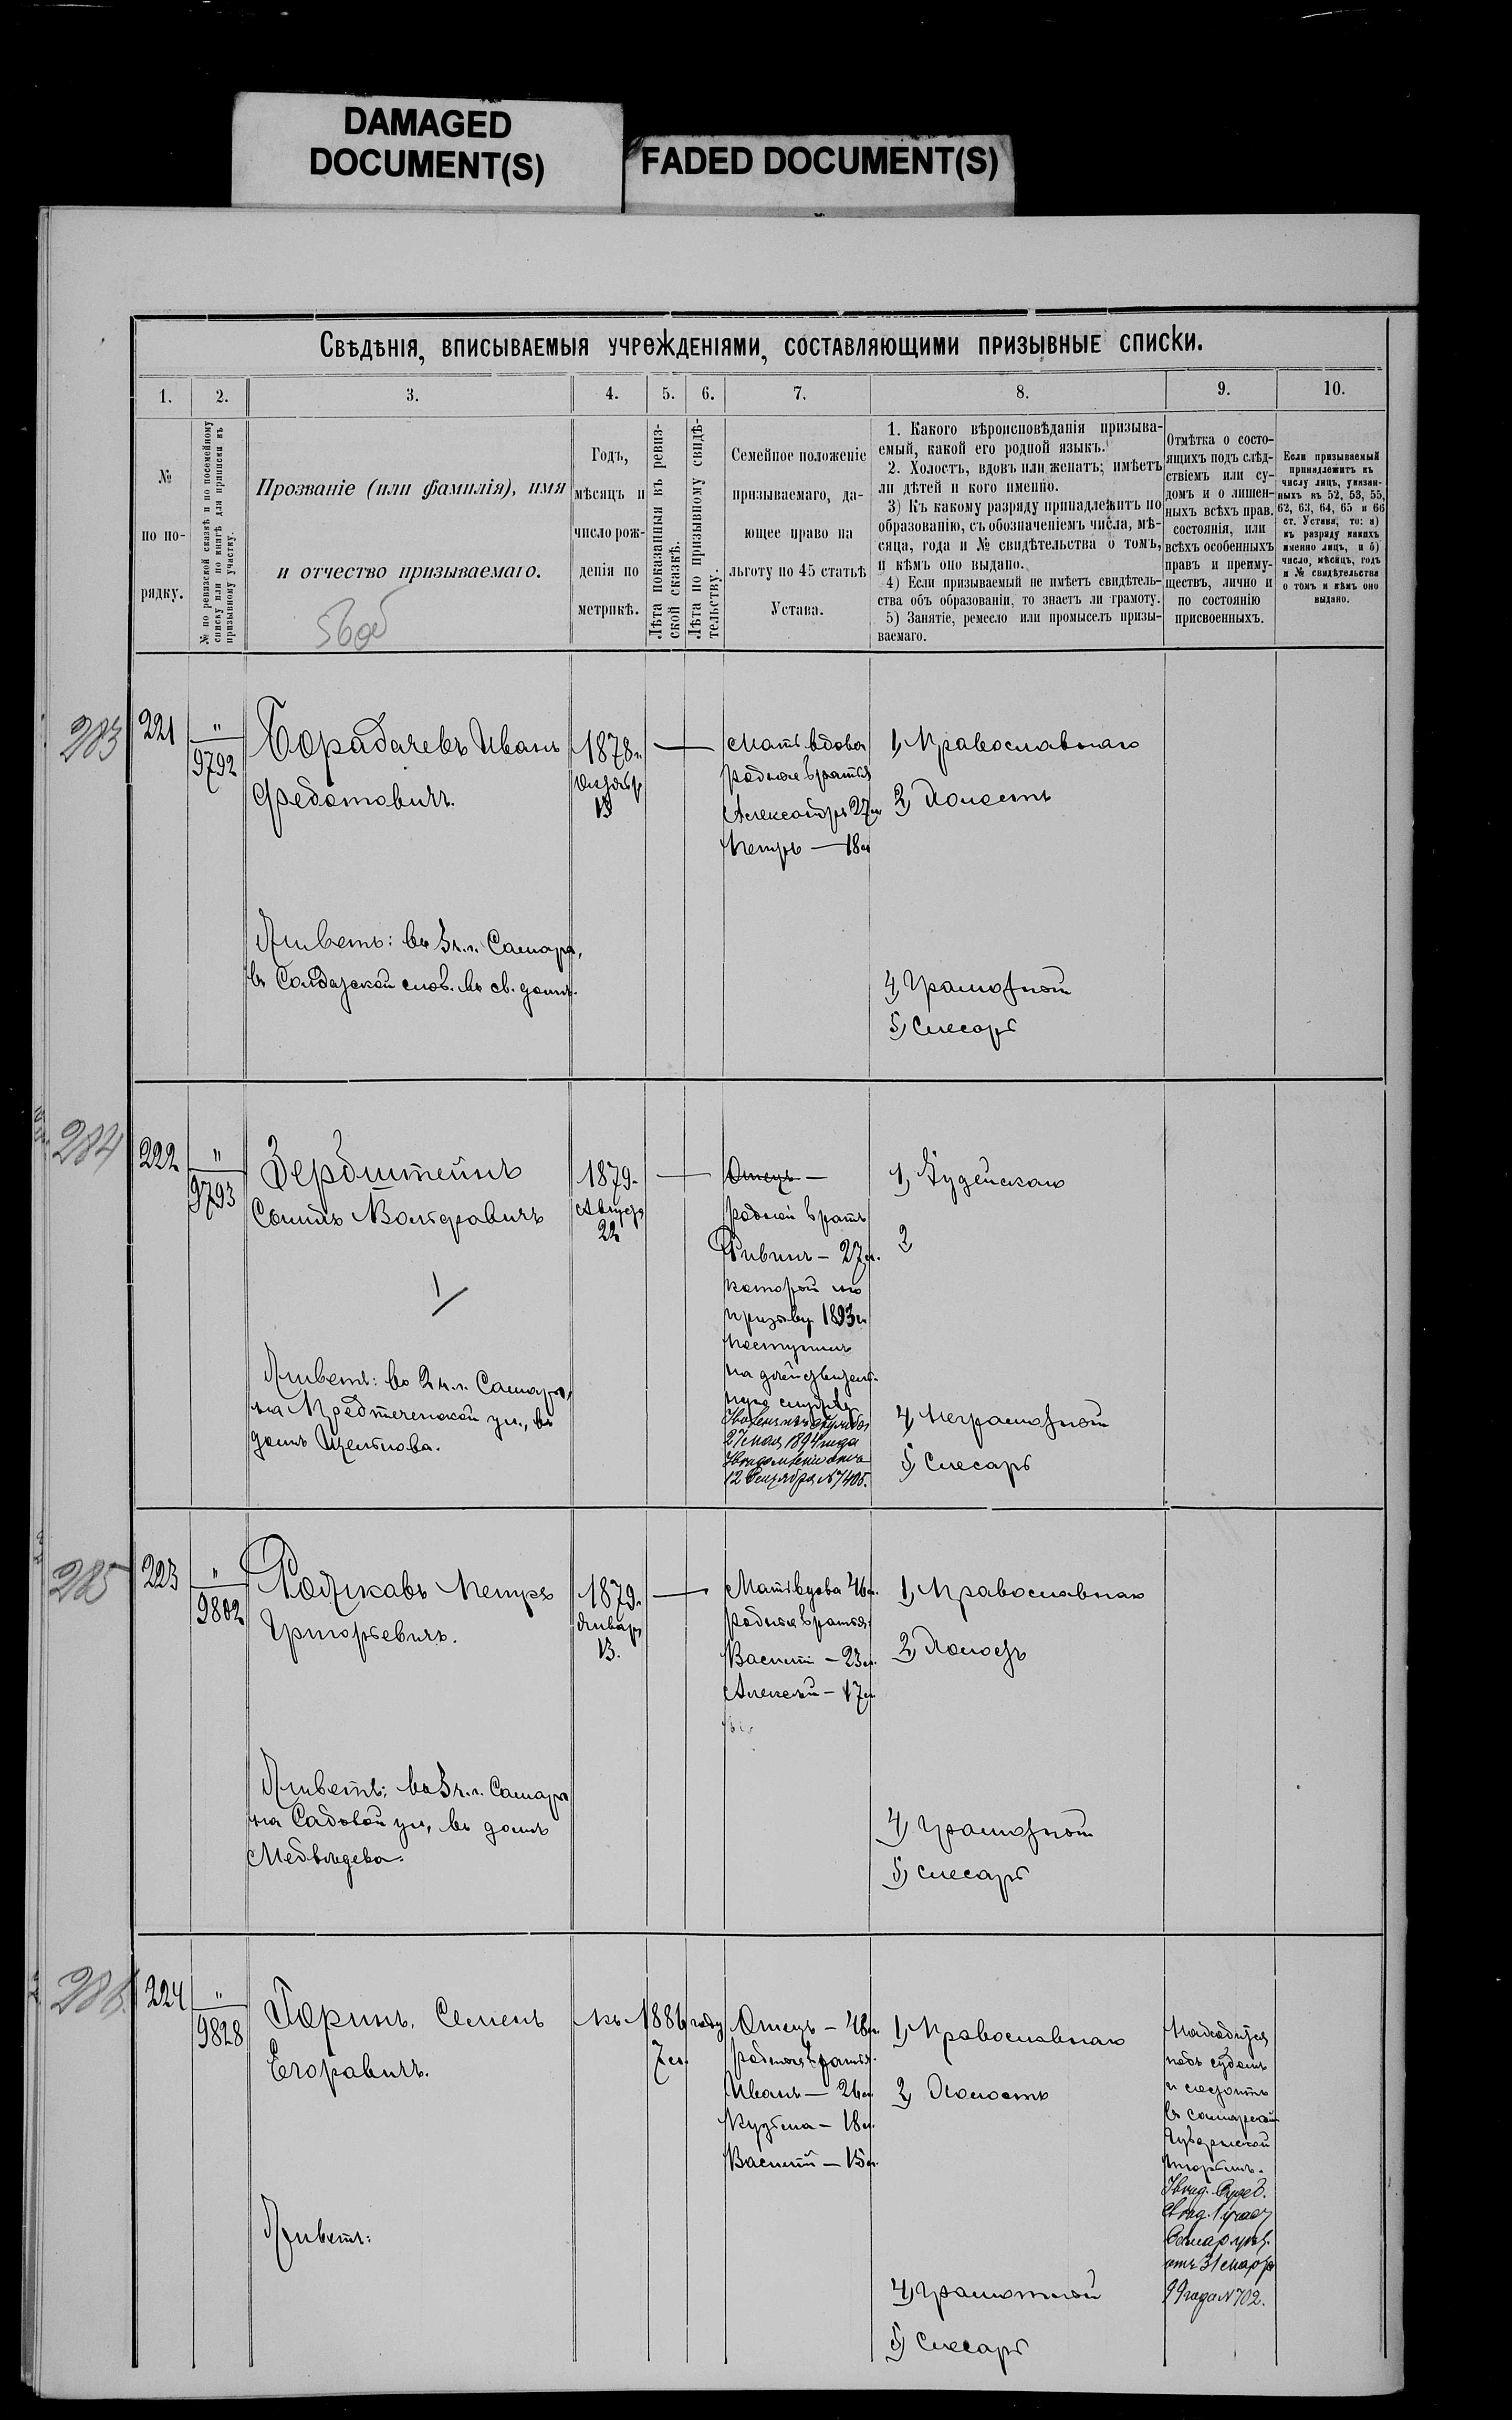 DAMAGED
DOCUMENT(S)
FADED DOCUMENT(S)
Свѣдѣнія, вписываемыя учрежденіями, составляющими призывные списки.
1. 2. 3. 4. 5. 6. 7. 8. 9. 10.
№
по по-
рядку.
№ по ревизской сказкѣ и по посемейному
списку или по книгѣ для приписки къ
призывному участку.
Прозваніе (или фамилія), имя
и отчество призываемаго.
Годъ,
мѣсяцъ и
число рож-
денія по
метрикѣ.
Лѣта показанныя въ ревиз-
ской сказкѣ.
Лѣта по призывному свидѣ-
тельству.
Семейное положеніе
призываемаго, да-
ющее право на
льготу по 45 статьѣ
Устава.
1. Какого вѣроисповѣданія призыва-
емый, какой его родной языкъ.
2. Холостъ, вдовъ или женатъ; имѣетъ
ли дѣтей и кого именно.
3) Къ какому разряду принадлежитъ по
образованію, съ обозначеніемъ числа, мѣ-
сяца, года и № свидѣтельства о томъ,
и кѣмъ оно выдано.
4) Если призываемый не имѣетъ свидѣтель-
ства объ образованіи, то знаетъ ли грамоту.
5) Занятіе, ремесло или промыселъ призы-
ваемаго.
Отмѣтка о состо-
ящихъ подъ слѣд-
ствіемъ или су-
домъ и о лишен-
ныхъ всѣхъ прав.
состоянія, или
всѣхъ особенныхъ
правъ и преиму-
ществъ, лично и
по состоянію
присвоенныхъ.
Если призываемый
принадлежитъ къ
числу лицъ, указан-
ныхъ въ 52, 53, 55,
62, 63, 64, 65 и 66
ст. Устава, то: а)
къ разряду какихъ
именно лицъ, и б)
число, мѣсяцъ, годъ
и № свидѣтельства
о томъ и кѣмъ оно
выдано.
283
221
"
9792
Борадачевъ Иванъ
Федотовичъ.
1878.
Октябр
13
Мать вдова
родные братья
Александръ 27 л
Петръ — 18 л
1, Православнаго
2, Холостъ
Живетъ: въ 3 ч. г. Самара,
въ Солдатской слоб. въ св. домѣ.
4, Грамотной
5, Слесарь
284
222
"
9793
Зербштейнъ
1879.
Августа
22
Отецъ —
родной братъ
Ривинъ — 27 л.
которой по
призыву 1893 г
поступилъ
на дѣйствител-
ную службу
27 мая 1894 года
12 Сентября № 7405.
1, Іудейскаго
2
Живетъ: во 2 ч. г. Самары,
на Предтеченской ул., въ
домѣ Щелокова.
4, Неграмотной
5, Слесарь
285
223
"
9802
Петръ
Григорьевичъ.
1879.
Январ
13.
Мать вдова 46 л.
родные братья:
Василій — 23 л.
Алексѣй — 17 л.
1, Православнаго
2, Холостъ
Живетъ: въ 3 ч. г. Самары
на Садовой ул, въ домѣ
Медвѣдева.
4, Грамотной
5, Слесарь
286.
224
"
9828
Горинъ, Семенъ
Егоравичъ.
къ 1886 году
7 л.
Отецъ — 48 л.
родные братья:
Иванъ — 26 л.
Кузьма — 18 л.
Василій — 15 л.
1, Православнаго
2, Холостъ
Находится
подъ судомъ
и содержится
въ самарской
Губернской
тюрьмѣ.
отъ 31 марта
99 года № 702.
Живетъ:
4, Грамотной
5, Слесарь